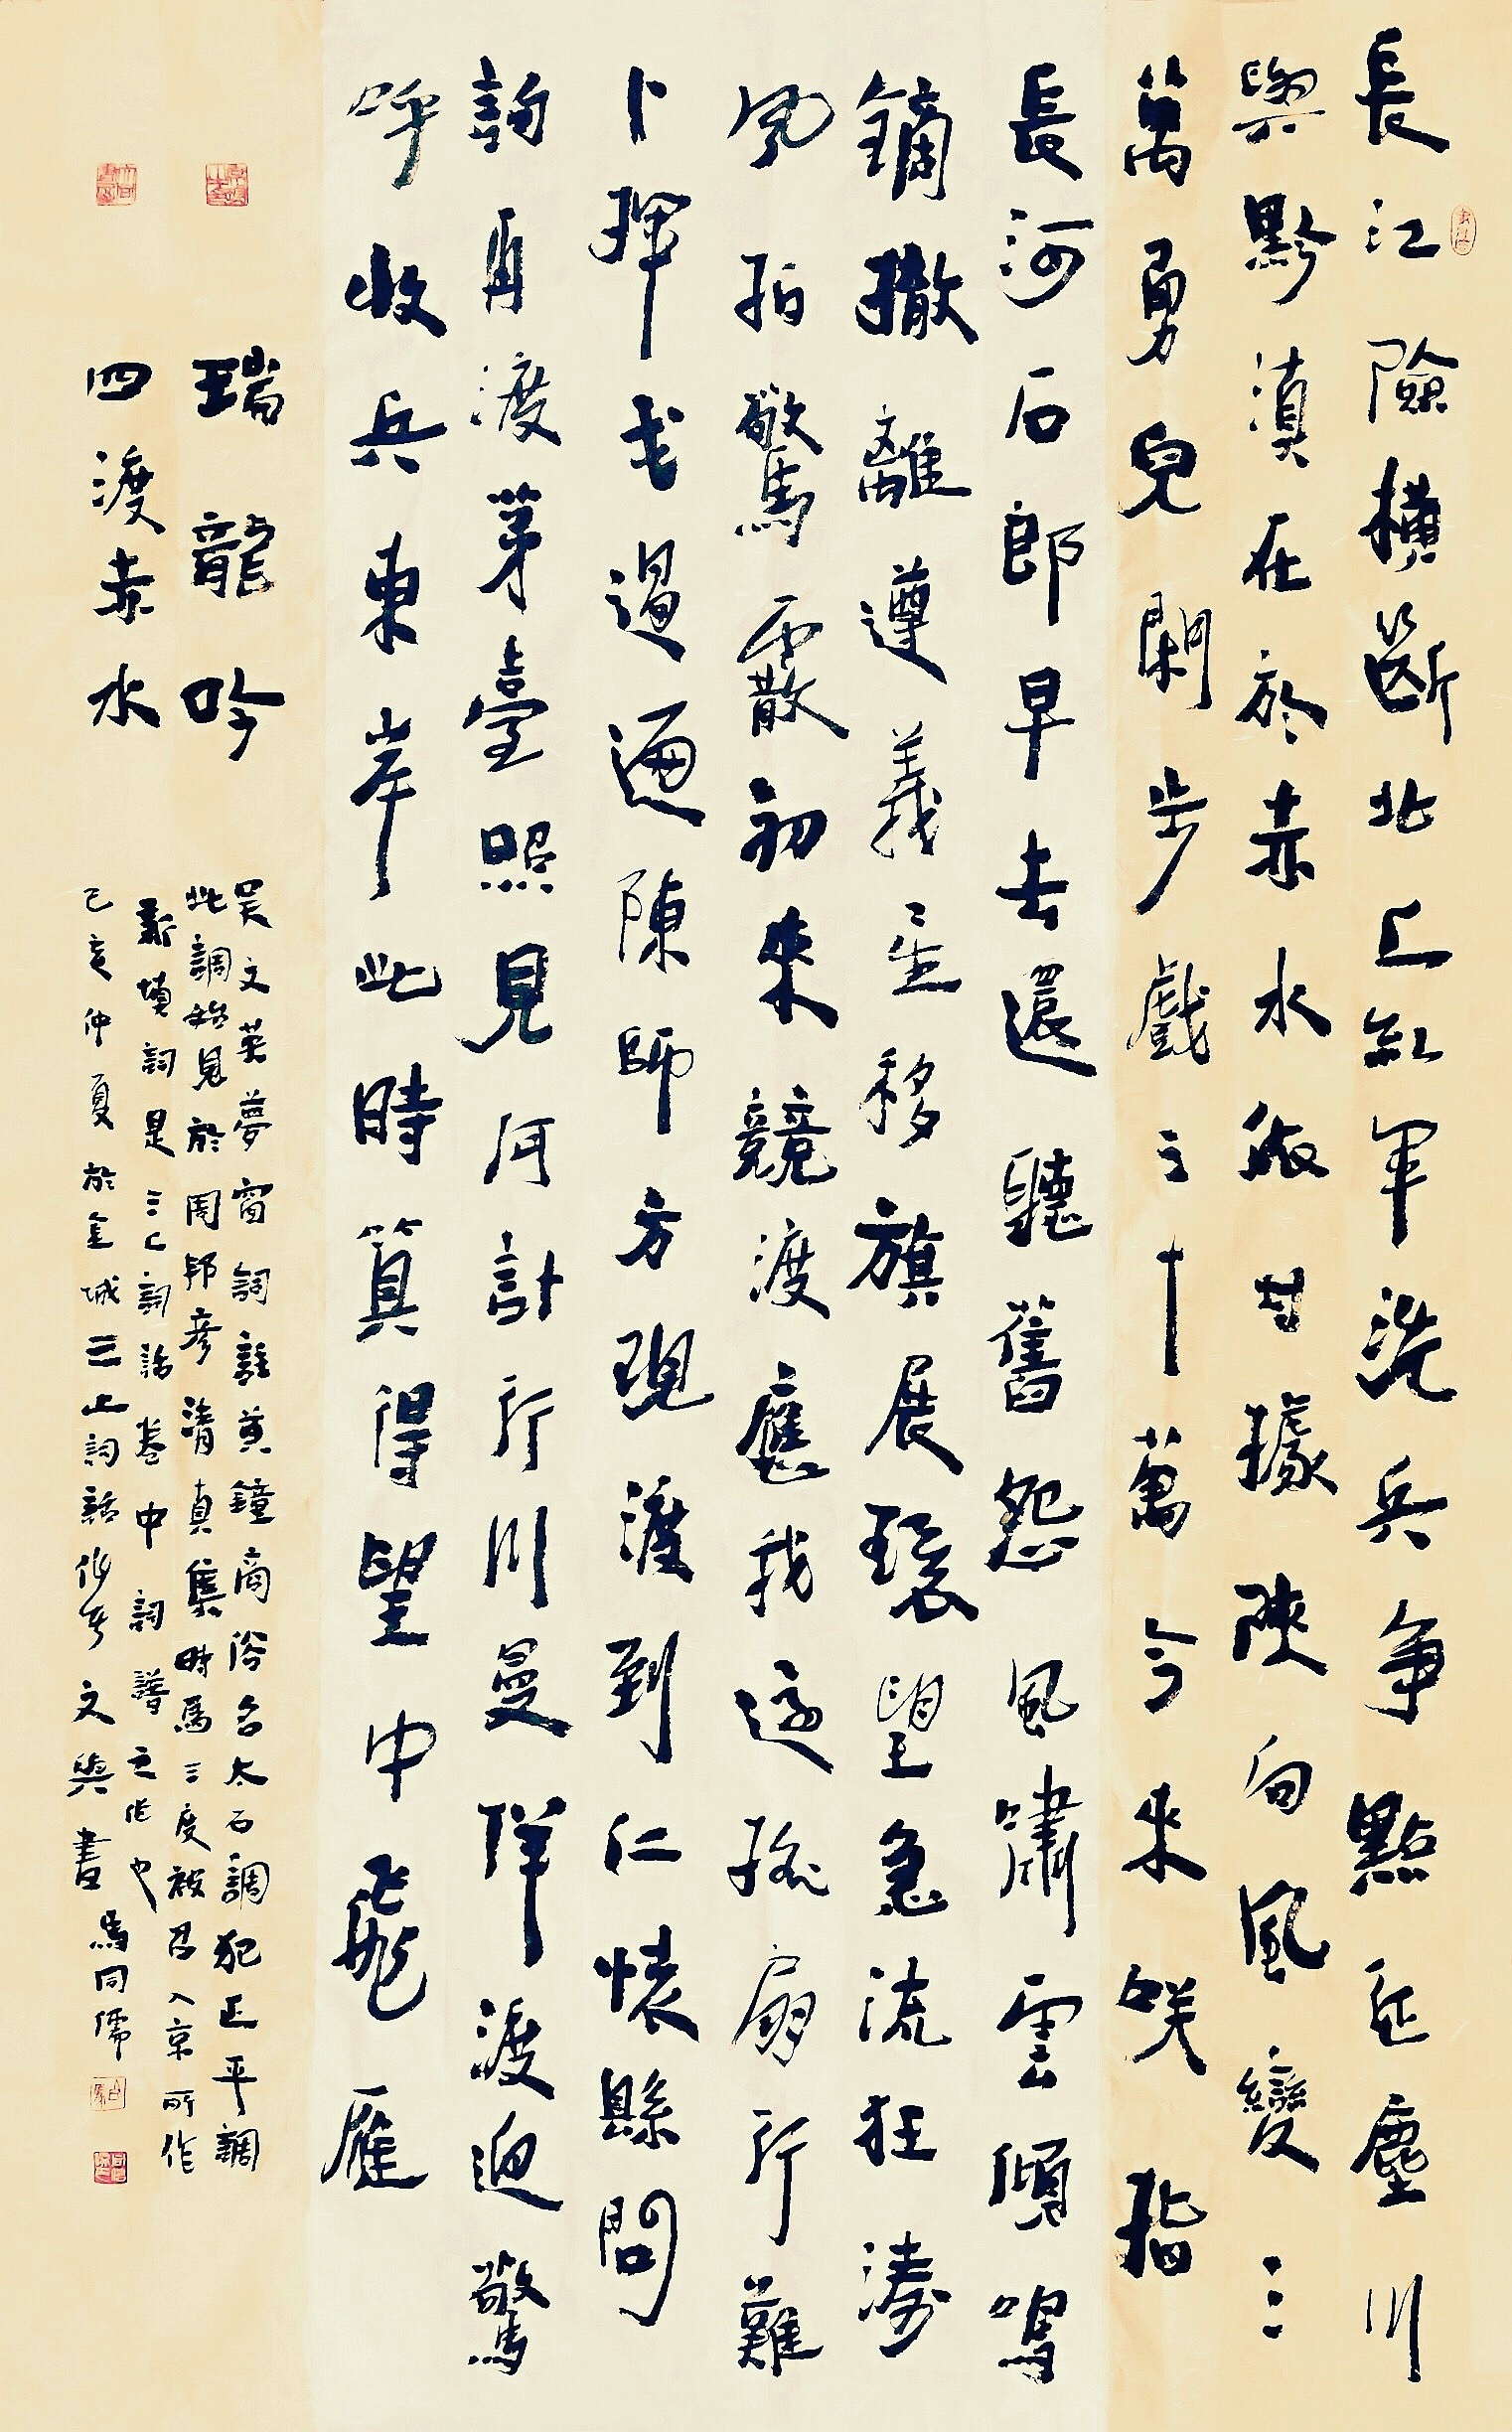 長江險橫斷北上紅軍洗兵爭點延塵川
與黔滇在於赤水做甘據陝向風變三
萬勇兒閑步戲之十萬今來咲指
長河石郎早去還聽舊怨風嘯雲傾鳴
鏑撤離遵義星移旗展環望急流狂濤
風拍驚霰初來競渡應我這孫扇行難
卜揮戈過迴陳師方現渡到仁懷縣問
詢再渡茅臺照見何計行川曼佯渡迎驚
呼收兵東岸此時算得望中飛雁
瑞龍吟
四渡赤水
吳文英夢窗詞註黃鐘商俗名太石調犯正平調
此調始見於周邦彥清真集時為三度被召入京所作
新填詞是三止詞話卷中詞譜之作也
己亥仲夏於金城三止詞話作者文與書馬同儒